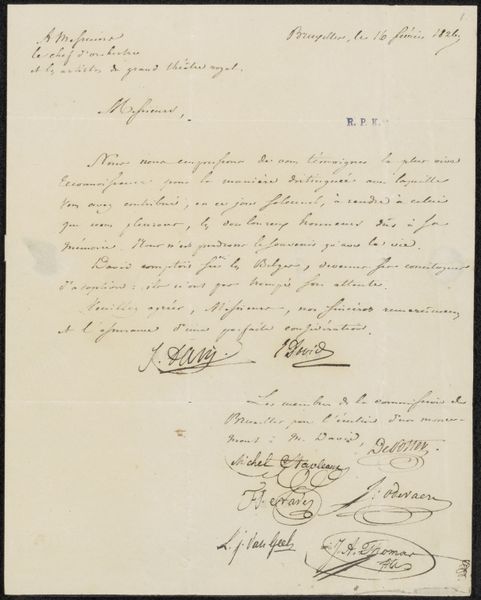 A Messieurs
le chef d'orchestre
et les artistes du grand théâtre royal.
Bruxelles, le 16 février 1826,
1
Messieurs,
R. P. K.
Nous nous empressons de vous témoigner la plus vive
reconnaissance pour la manière distinguée avec laquelle
vous avez contribué, en ce jour solennel, à rendre à celui
que nous pleurons, les douloureux honneurs dûs à sa
mémoire. Nous n'en perdrons le souvenir qu'avec la vie.
David comptait sur les Belges, devenus ses concitoyens
d'adoption: ils n'ont pas trompé son attente.
Veuillez agréer, Messieurs, nos sincères remerciemens
et l'assurance d'une parfaite considération.
David
Les membres de la commission de
Bruxelles pour l'érection d'un monu-
ment à M. David,
Michel Stapleaux
J. Odevaere
F. J. Navez
L. J. Van Geel
J. A. Thomas